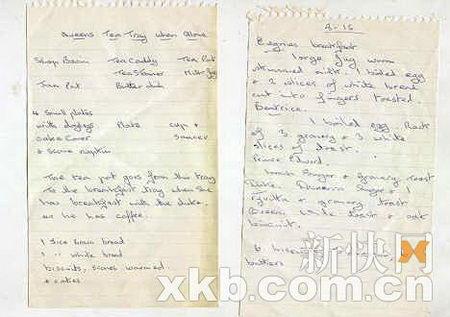 Queens Tea Tray when Alone
Slop Basin Tea Caddy Tea Pot
Tea Strainer Milk Jug
Jam Pot Butter dish
4 Small plates
with doyleys Plate cup +
cake cover saucer
+ scone napkin
The tea pot goes from this tray
to the breakfast tray when she
has breakfast with the duke.
as he has coffee.
1 slice brown bread
1 " white bread
biscuits, scones warmed
+ cakes
8-15
Eugenies breakfast
1 large jug warm
skimmed milk. 1 boiled egg
+ 2 slices of white bread
cut into fingers toasted
Beatrice.
1 boiled egg Rack
of 3 granary + 3 white
slices of toast.
Prince Edward
Granary Toast
+ 1
+ granary toast
Queen white toast + oat
biscuit.
6
butters
新快网
xkb.com.cn